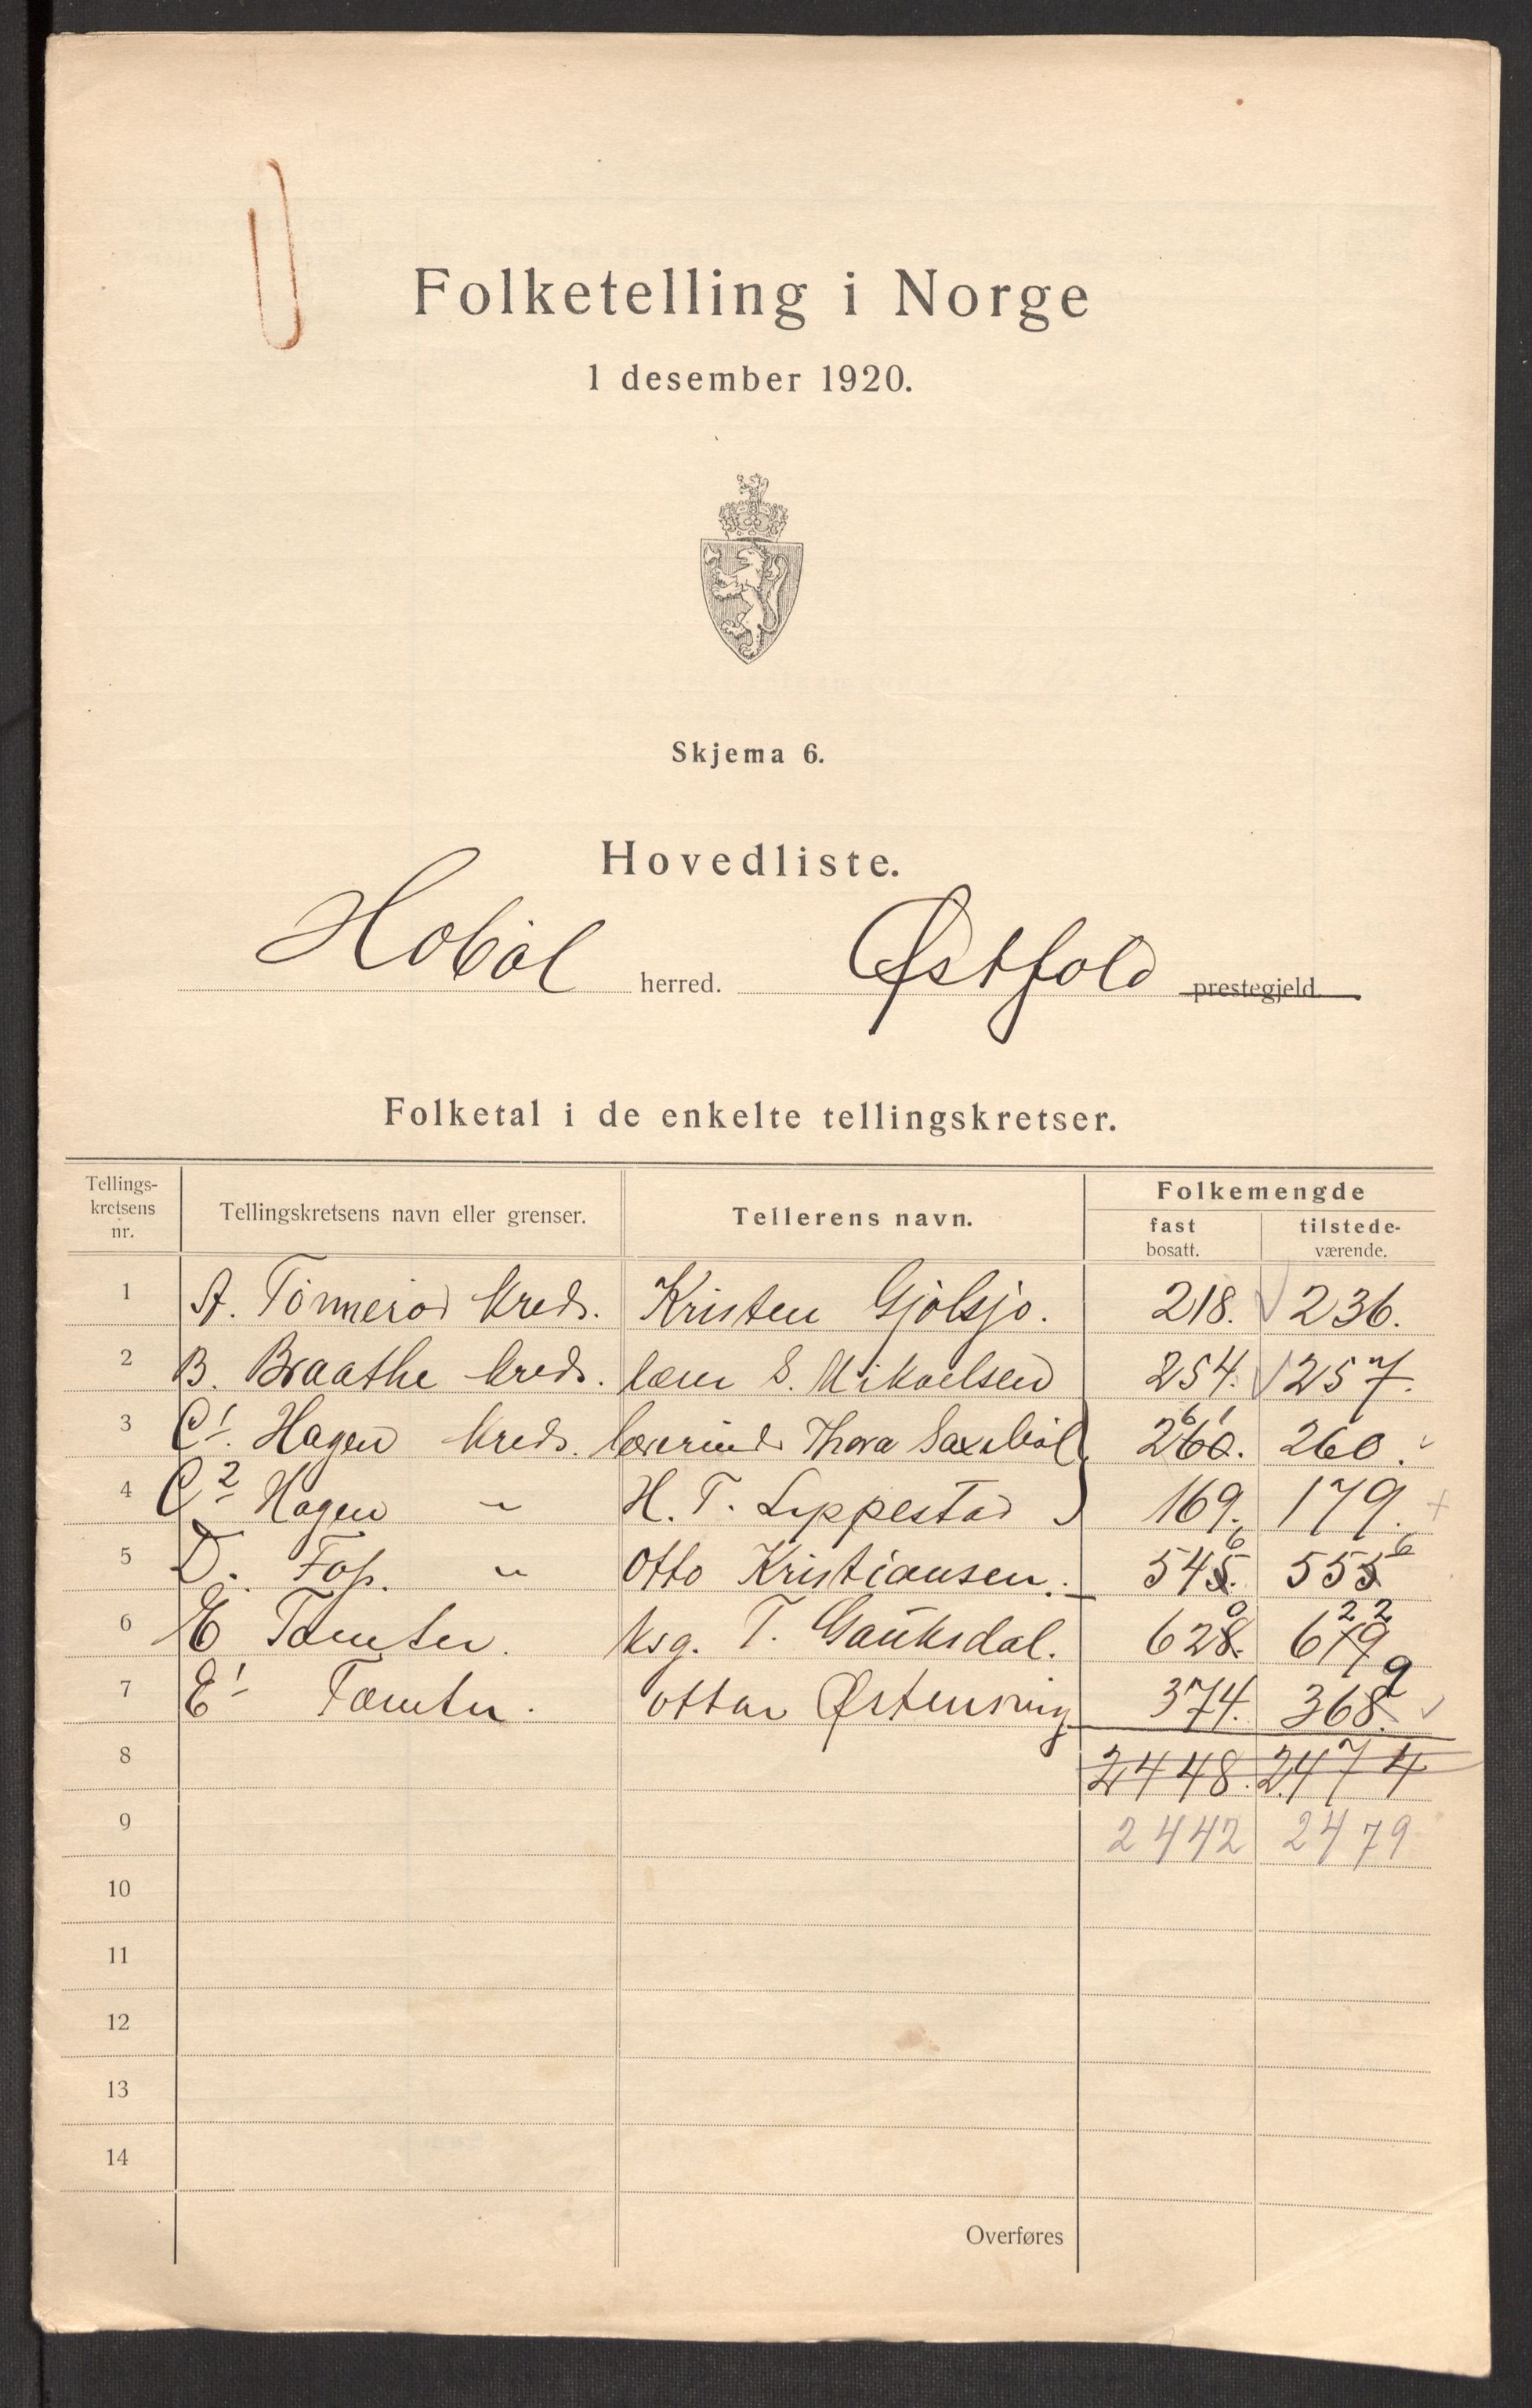 Folketelling i Norge
1 desember 1920.
Skjema 6.
Hovedliste.
Hobøl herred. Østfold prestegjeld.
Folketal i de enkelte tellingskretser.
Tellings-kretsens nr. Tellingskretsens navn eller grenser. Tellerens navn. Folkemengde
fast bosatt. tilstede-værende.
1 A. Tonnerød kreds. Kristen Gjølsjø. 218. 236.
2 B. Braathe kreds. S. Mikaelsen 254. 257.
3 C1. Hagen kreds. Lærerinde Thora Saxebøl 260. 260.
4 C2 Hagen " H. T. Lippestad 169. 179.
5 D. Foss. " Otto Kristiansen. 546 556
6 E Tomter. Ksg. T. Gauksdal. 620 622
7 E1 Tomter. Ottar Østensvig 374. 369
8 2448. 2474
9 2442 2479
10
11
12
13
14
Overføres